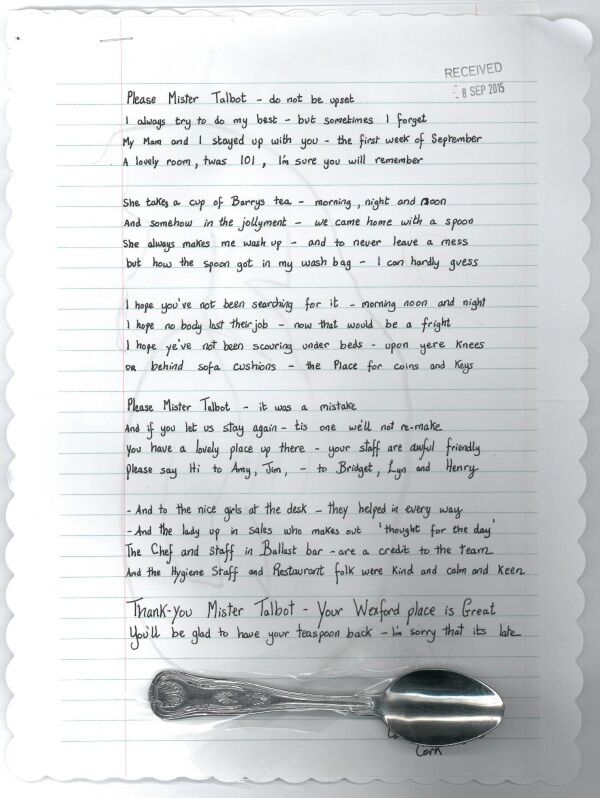 RECEIVED
8 SEP 2015
Please Mister Talbot - do not be upset
I always try to do my best - but sometimes I forget
My Mam and I stayed up with you - the first week of September
A lovely room, twas 101, I'm sure you will remember
She takes a cup of Barrys tea - morning, night and noon
And somehow in the jollyment - we came home with a spoon
She always makes me wash up - and to never leave a mess
but how the spoon got in my wash bag - I can hardly guess
I hope you've not been searching for it - morning noon and night
I hope no body lost their job - now that would be a fright
I hope ye've not been scouring under beds - upon yere knees
OR behind sofa cushions - the Place for coins and Keys
Please Mister Talbot - it was a mistake
And if you let us stay again - tis one we'll not re-make
You have a lovely place up there - your staff are awful friendly
please say Hi to Amy, Jim, - to Bridget, Lyn and Henry
- And to the nice girls at the desk - they helped in every way
- And the lady up in sales who makes out 'thought for the day'
The Chef and staff in Ballast bar - are a credit to the team
And the Hygiene Staff and Restaurant folk were Kind and calm and Keen
Thank-you Mister Talbot - Your Wexford place is Great
You'll be glad to have your teaspoon back - I'm sorry that its late
Cork